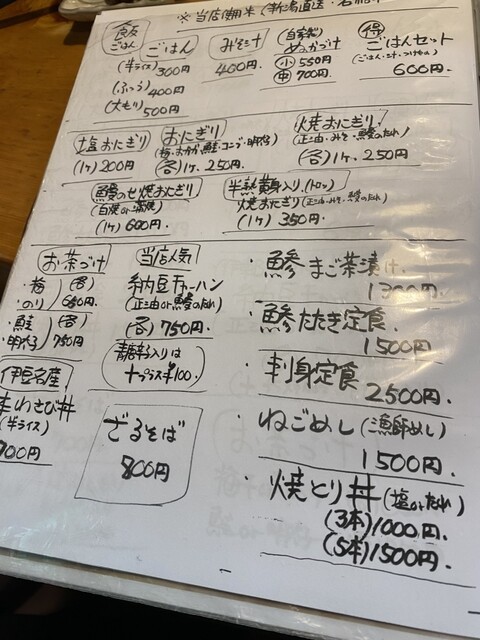 ※当店
食友
ごはん
ごはん
(半ライス)300円
(ふつう)400円
(大もり)500円
みそ汁
400円
自家製
ぬかづけ
小 550円
中 700円
得
ごはんセット
(ごはん・汁・つけもの)
600円
塩おにぎり
(1ヶ)200円
おにぎり
(梅・おかか・鮭・コンブ・明太子)
(各)1ヶ.250円
焼おにぎり
(正油・みそ・鰻のたれ)
(各)1ヶ.250円
鰻のせ焼おにぎり
(白焼or蒲焼)
(1ヶ)600円
半熟黄身入り(トロッ)
焼おにぎり(正油・みそ・鰻のたれ)
(1ヶ)350円
お茶づけ
・梅
・のり
(各)
650円
・鮭
・明太子
(各)
750円
伊豆名産
わさび丼
(半ライス)
700円
当店人気
納豆チャーハン
(正油or鰻のたれ)
(各)750円
青唐辛子入りは
+プラス¥100
ざるそば
800円
・鯵まご茶漬け
1300円
・鯵たたき定食.
1500円
・刺身定食
2500円
・ねごめし(漁師めし)
1500円.
・焼とり丼(塩orたれ)
(3本)1000円
(5本)1500円.